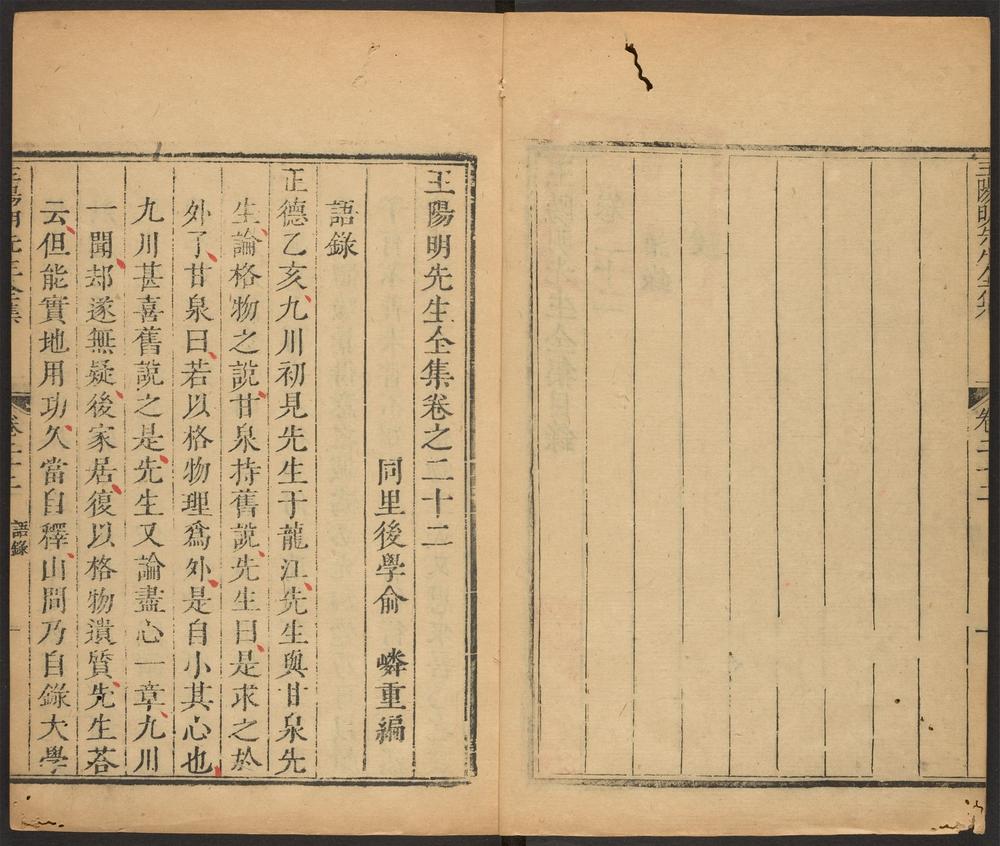 王陽明先生全集
卷二十二
一
王陽明先生全集卷之二十二
同里後學俞 嶙重編
語錄
正德乙亥九川初見先生于龍江先生與甘泉先
生論格物之說甘泉持舊說先生曰是求之於
外了甘泉曰若以格物理爲外是自小其心也
九川甚喜舊說之是先生又論盡心一章九川
一聞却遂無疑後家居復以格物遺質先生荅
云但能實地用功久當自釋山間乃自錄大學
王陽明先生全集
卷二十二
語錄
一